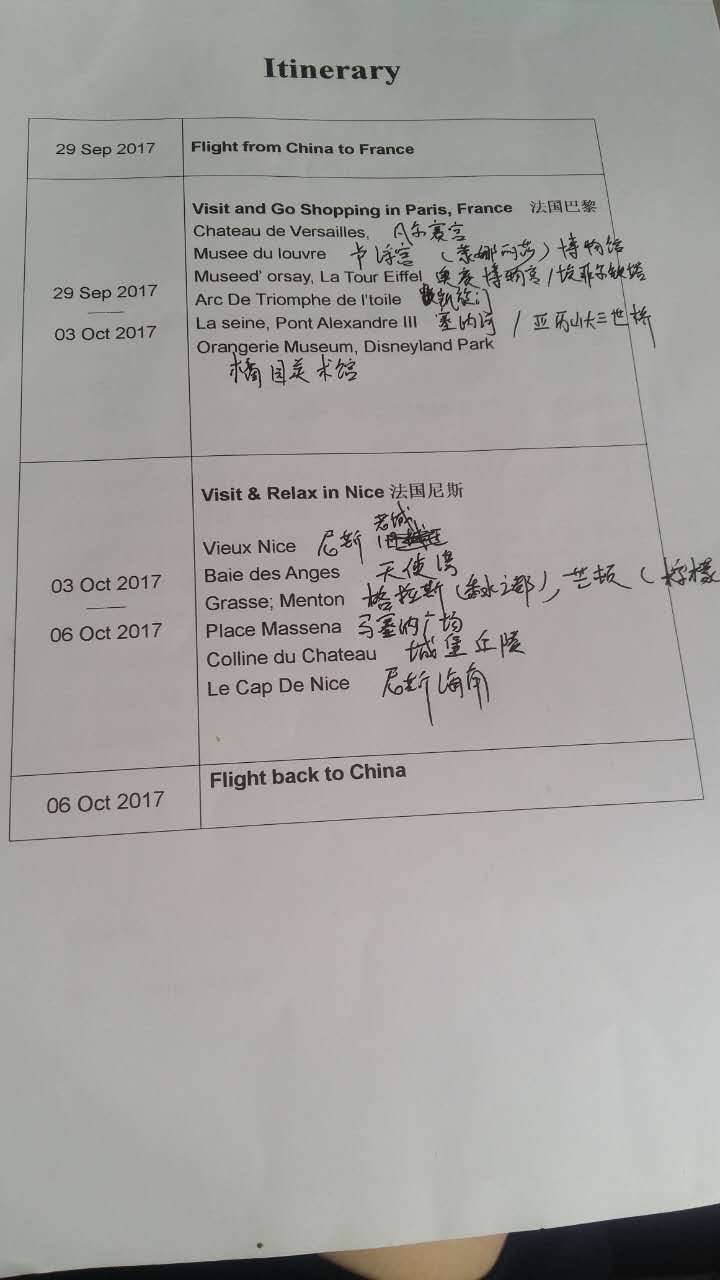 Itinerary
29 Sep 2017
Flight from China to France
29 Sep 2017
03 Oct 2017
Visit and Go Shopping in Paris, France 法国巴黎
Chateau de Versailles, 凡尔赛宫
Musee du louvre 卢浮宫 (蒙娜丽莎) 博物馆
Museed' orsay, La Tour Eiffel 奥赛博物馆 / 埃菲尔铁塔
Arc De Triomphe de l'toile 凯旋门
La seine, Pont Alexandre III 塞纳河 / 亚历山大三世桥
Orangerie Museum, Disneyland Park
橘园美术馆
03 Oct 2017
06 Oct 2017
Visit & Relax in Nice 法国尼斯
老城
Vieux Nice 尼斯
Baie des Anges 天使湾
Grasse; Menton 格拉斯 (香水之都), 芒顿 (柠檬
Place Massena 马塞纳广场
Colline du Chateau 城堡丘陵
Le Cap De Nice 尼斯海角
06 Oct 2017
Flight back to China